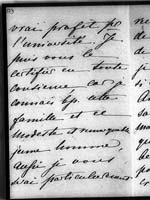 vrai profit pr
l'université. Je
puis vous le
certifier en toute
conscience car je
connais bp. cette
famille et ce
modeste et
jeune homme,
aussi je vous
serai particulièrement